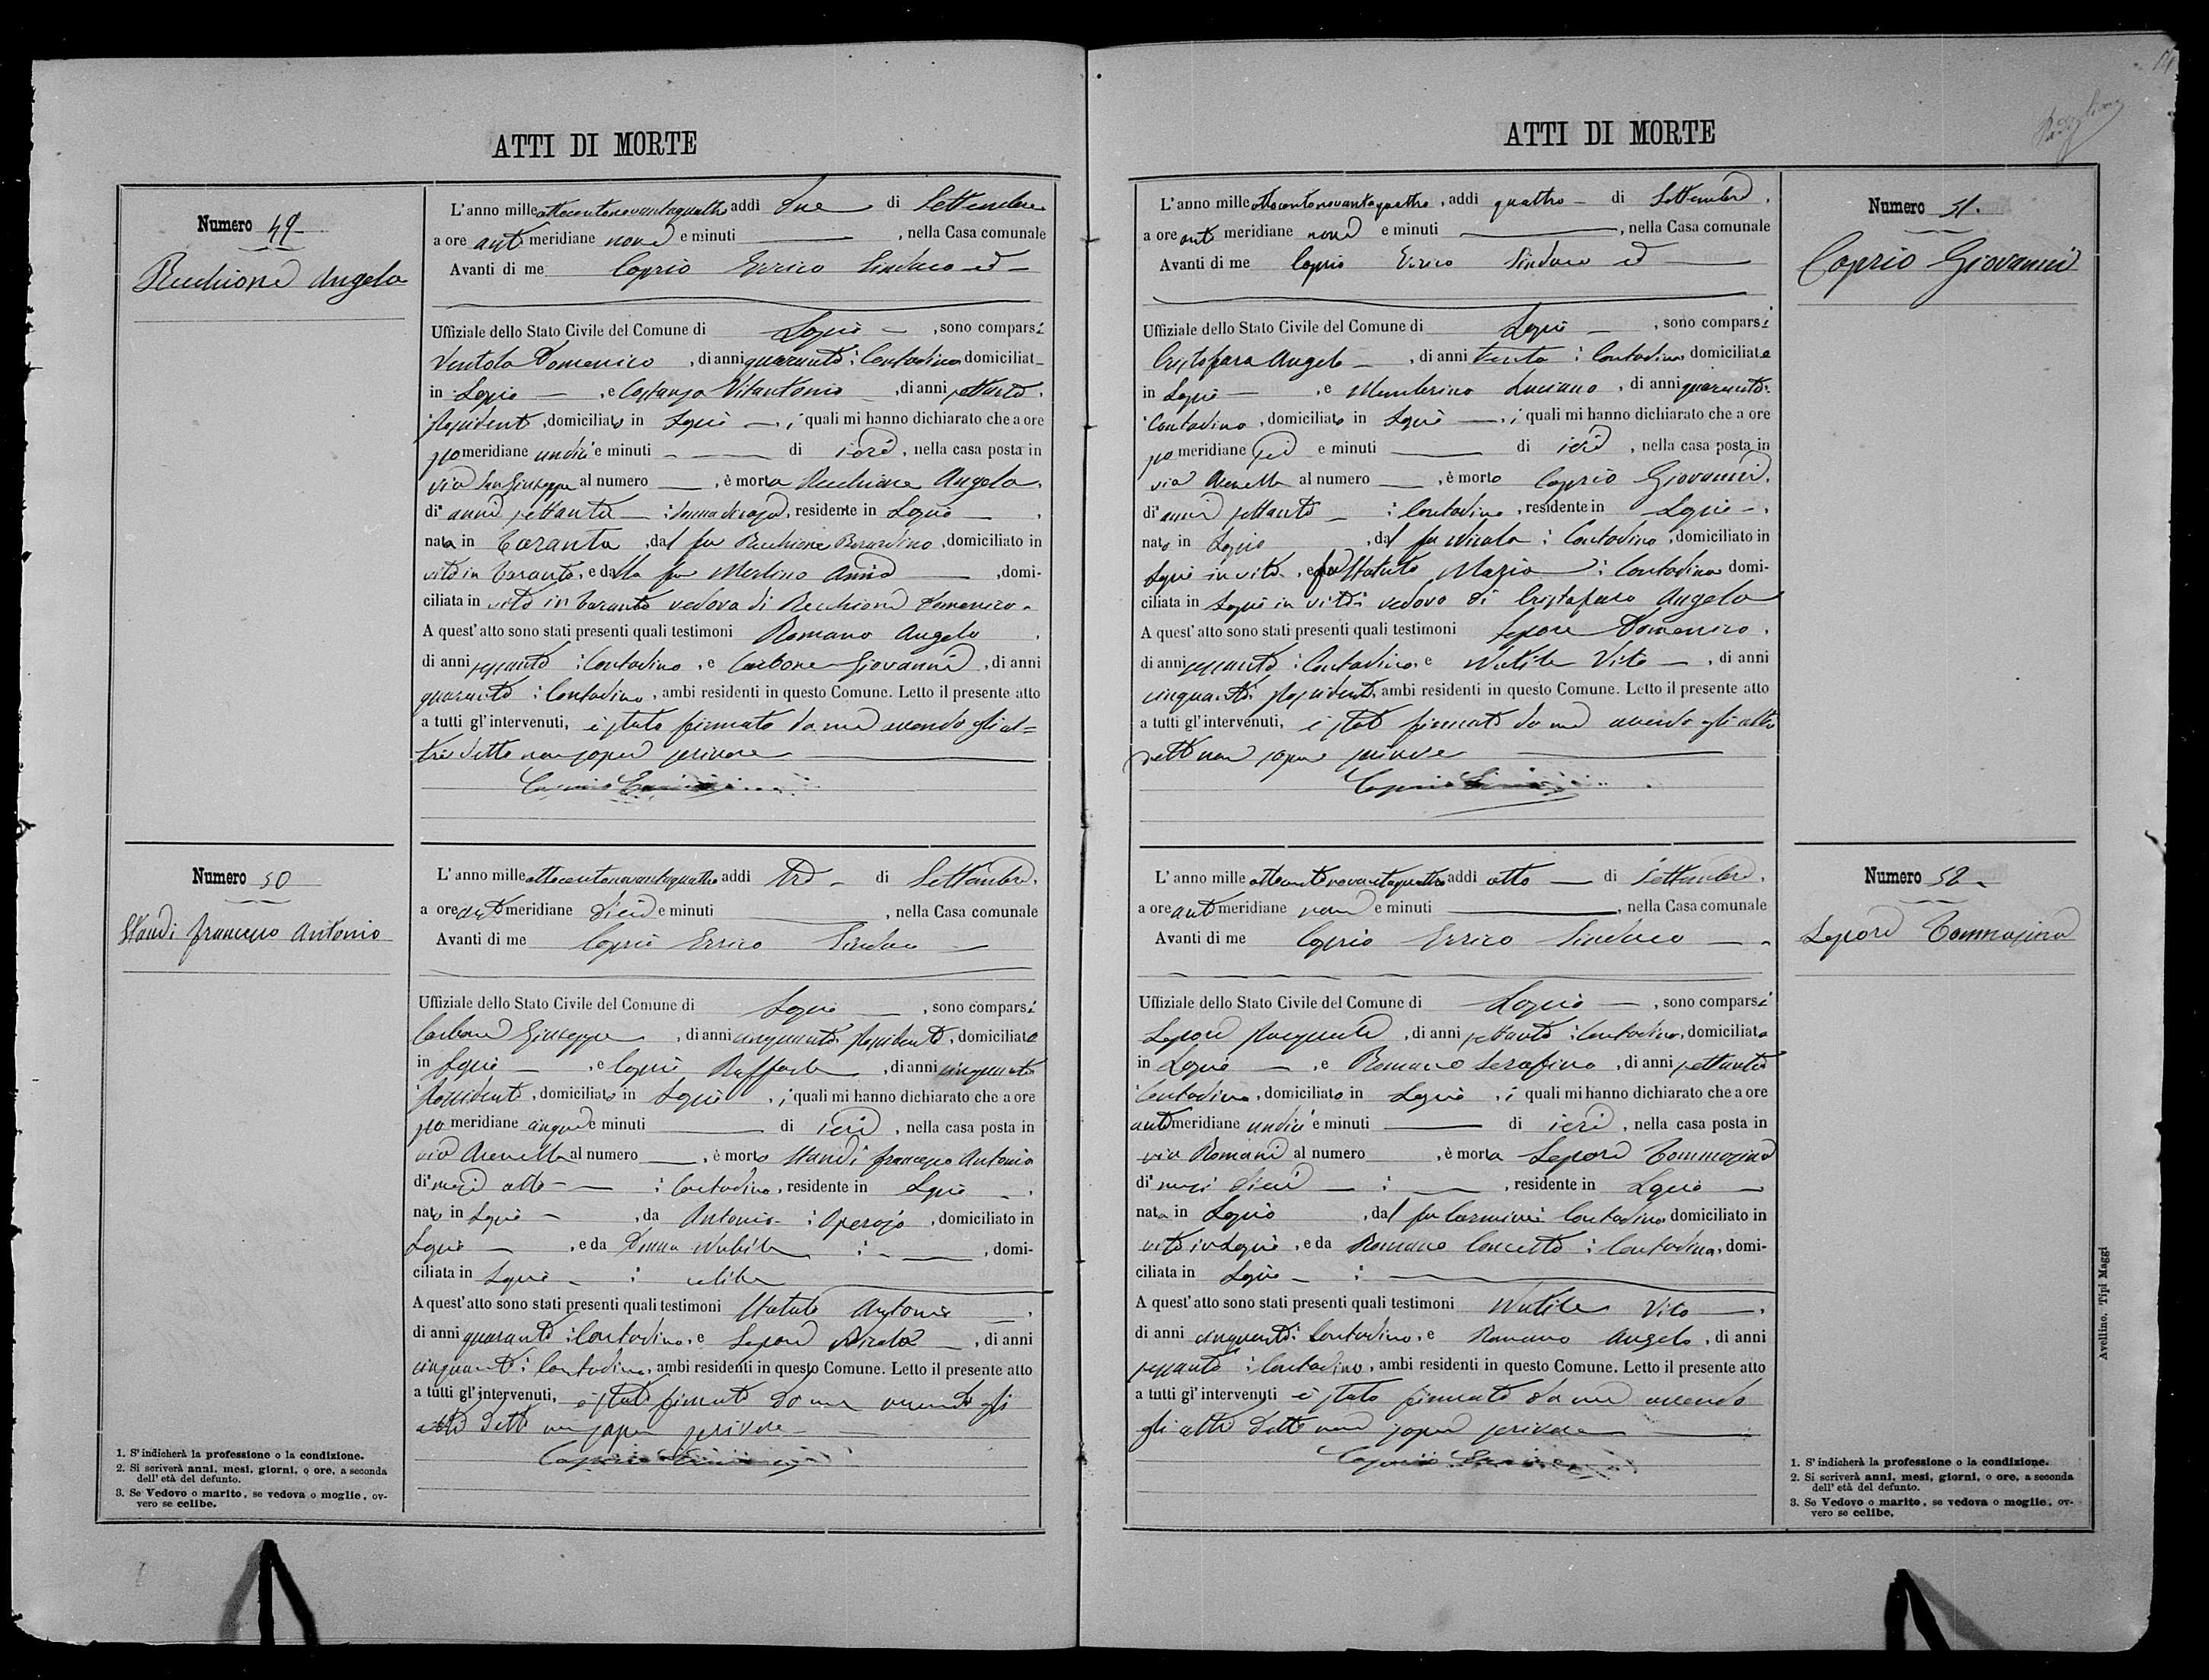 ATTI DI MORTE
Numero 49
Recchione Angela
L'anno mille ottocentonovantaquattro addì due di Settembre
a ore anti meridiane nove e minuti , nella Casa comunale
Avanti di me Caprio Errico Sindaco ed
Uffiziale dello Stato Civile del Comune di , sono comparsi
Ventola Domenico , di anni quaranta : Contadino domiciliat
in , e Costanza Vitantonio , di anni settanta
: Possidente , domiciliato in , i quali mi hanno dichiarato che a ore
po meridiane undici e minuti di ieri , nella casa posta in
via San Giuseppe al numero , è morta Recchione Angela
di anni settanta : donna di casa , residente in
nata in Taranta , dal fu Recchione Berardino , domiciliato in
vita in Taranta , e dalla fu Merlino Anna , domi-
ciliata in vita in Taranta vedova di Recchione Domenico
A quest' atto sono stati presenti quali testimoni Romano Angelo
di anni sessanta : Contadino , e Carbone Giovanni , di anni
quaranta : Contadino , ambi residenti in questo Comune. Letto il presente atto
a tutti gl' intervenuti, è stato firmato da me avendo gli al=
tri detto non saper scrivere
Numero 50
Standi Francesco Antonio
L'anno mille ottocentonovantaquattro addì tre di Settembre
a ore anti meridiane dieci e minuti , nella Casa comunale
Avanti di me Caprio Errico Sindaco
Uffiziale dello Stato Civile del Comune di , sono comparsi
Carbone Giuseppe , di anni cinquanta Possidente , domiciliato
in , e Caprio Raffaele , di anni cinquanta
: Possidente , domiciliato in , i quali mi hanno dichiarato che a ore
po meridiane cinque e minuti di ieri , nella casa posta in
via Arenella al numero , è morto Standi Francesco Antonio
di mesi otto : Contadino , residente in
nato in , da Antonio : Operajo , domiciliato in
, e da Nubile : , domi-
ciliata in : celibe
A quest' atto sono stati presenti quali testimoni Statuto Antonio
di anni quaranta : Contadino , e Lepore Nicola , di anni
cinquanta : Contadino , ambi residenti in questo Comune. Letto il presente atto
a tutti gl' intervenuti, è stato firmato da me avendo gli
altri detto non saper scrivere
1. S' indicherà la professione o la condizione.
2. Si scriverà anni, mesi, giorni, o ore, a seconda
dell' età del defunto.
3. Se Vedovo o marito, se vedova o moglie, ov-
vero se celibe.
ATTI DI MORTE
Numero 51.
Caprio Giovanni
L'anno mille ottocentonovantaquattro , addì quattro di Settembre ,
a ore anti meridiane nove e minuti , nella Casa comunale
Avanti di me Caprio Errico Sindaco ed
Uffiziale dello Stato Civile del Comune di , sono comparsi
Cristofaro Angelo , di anni trenta : Contadino domiciliato
in , e Luciano , di anni quaranta :
Contadino , domiciliato in , i quali mi hanno dichiarato che a ore
po meridiane sei e minuti di ieri , nella casa posta in
via Arenella al numero , è morto Caprio Giovanni ,
di anni settanta : Contadino , residente in
nato in , dal fu Nicola : Contadino , domiciliato in
in vita , e fu Statuto Maria : Contadina domi-
ciliata in in vita : vedovo di Cristofaro Angela
A quest' atto sono stati presenti quali testimoni Lepore Domenico ,
di anni sessanta : Contadino , e Nutile Vito , di anni
cinquanta : Possidente , ambi residenti in questo Comune. Letto il presente atto
a tutti gl' intervenuti, è stato firmato da me avendo gli altri
detto non saper scrivere
Numero 52
Lepore Tommasina
L'anno mille ottocentonovantaquattro addì otto di Settembre ,
a ore anti meridiane nove e minuti , nella Casa comunale
Avanti di me Caprio Errico Sindaco
Uffiziale dello Stato Civile del Comune di , sono comparsi
Lepore Pasquale , di anni settanta : Contadino , domiciliato
in , e Romano Serafino , di anni settanta
: Contadino , domiciliato in , i quali mi hanno dichiarato che a ore
anti meridiane undici e minuti di ieri , nella casa posta in
via Romani al numero , è morta Lepore Tommasina
di mesi dieci : , residente in
nata in , dal fu Carmine Contadino domiciliato in
vita in , e da Romano Concetta : Contadina , domi-
ciliata in :
A quest' atto sono stati presenti quali testimoni Nutile Vito ,
di anni cinquanta : Contadino , e Romano Angelo , di anni
sessanta : Contadino , ambi residenti in questo Comune. Letto il presente atto
a tutti gl' intervenuti è stato firmato da me avendo
gli altri detto non saper scrivere
1. S' indicherà la professione o la condizione.
2. Si scriverà anni, mesi, giorni, o ore, a seconda
dell' età del defunto.
3. Se Vedovo o marito, se vedova o moglie, ov-
vero se celibe.
Avellino. Tipi Maggi